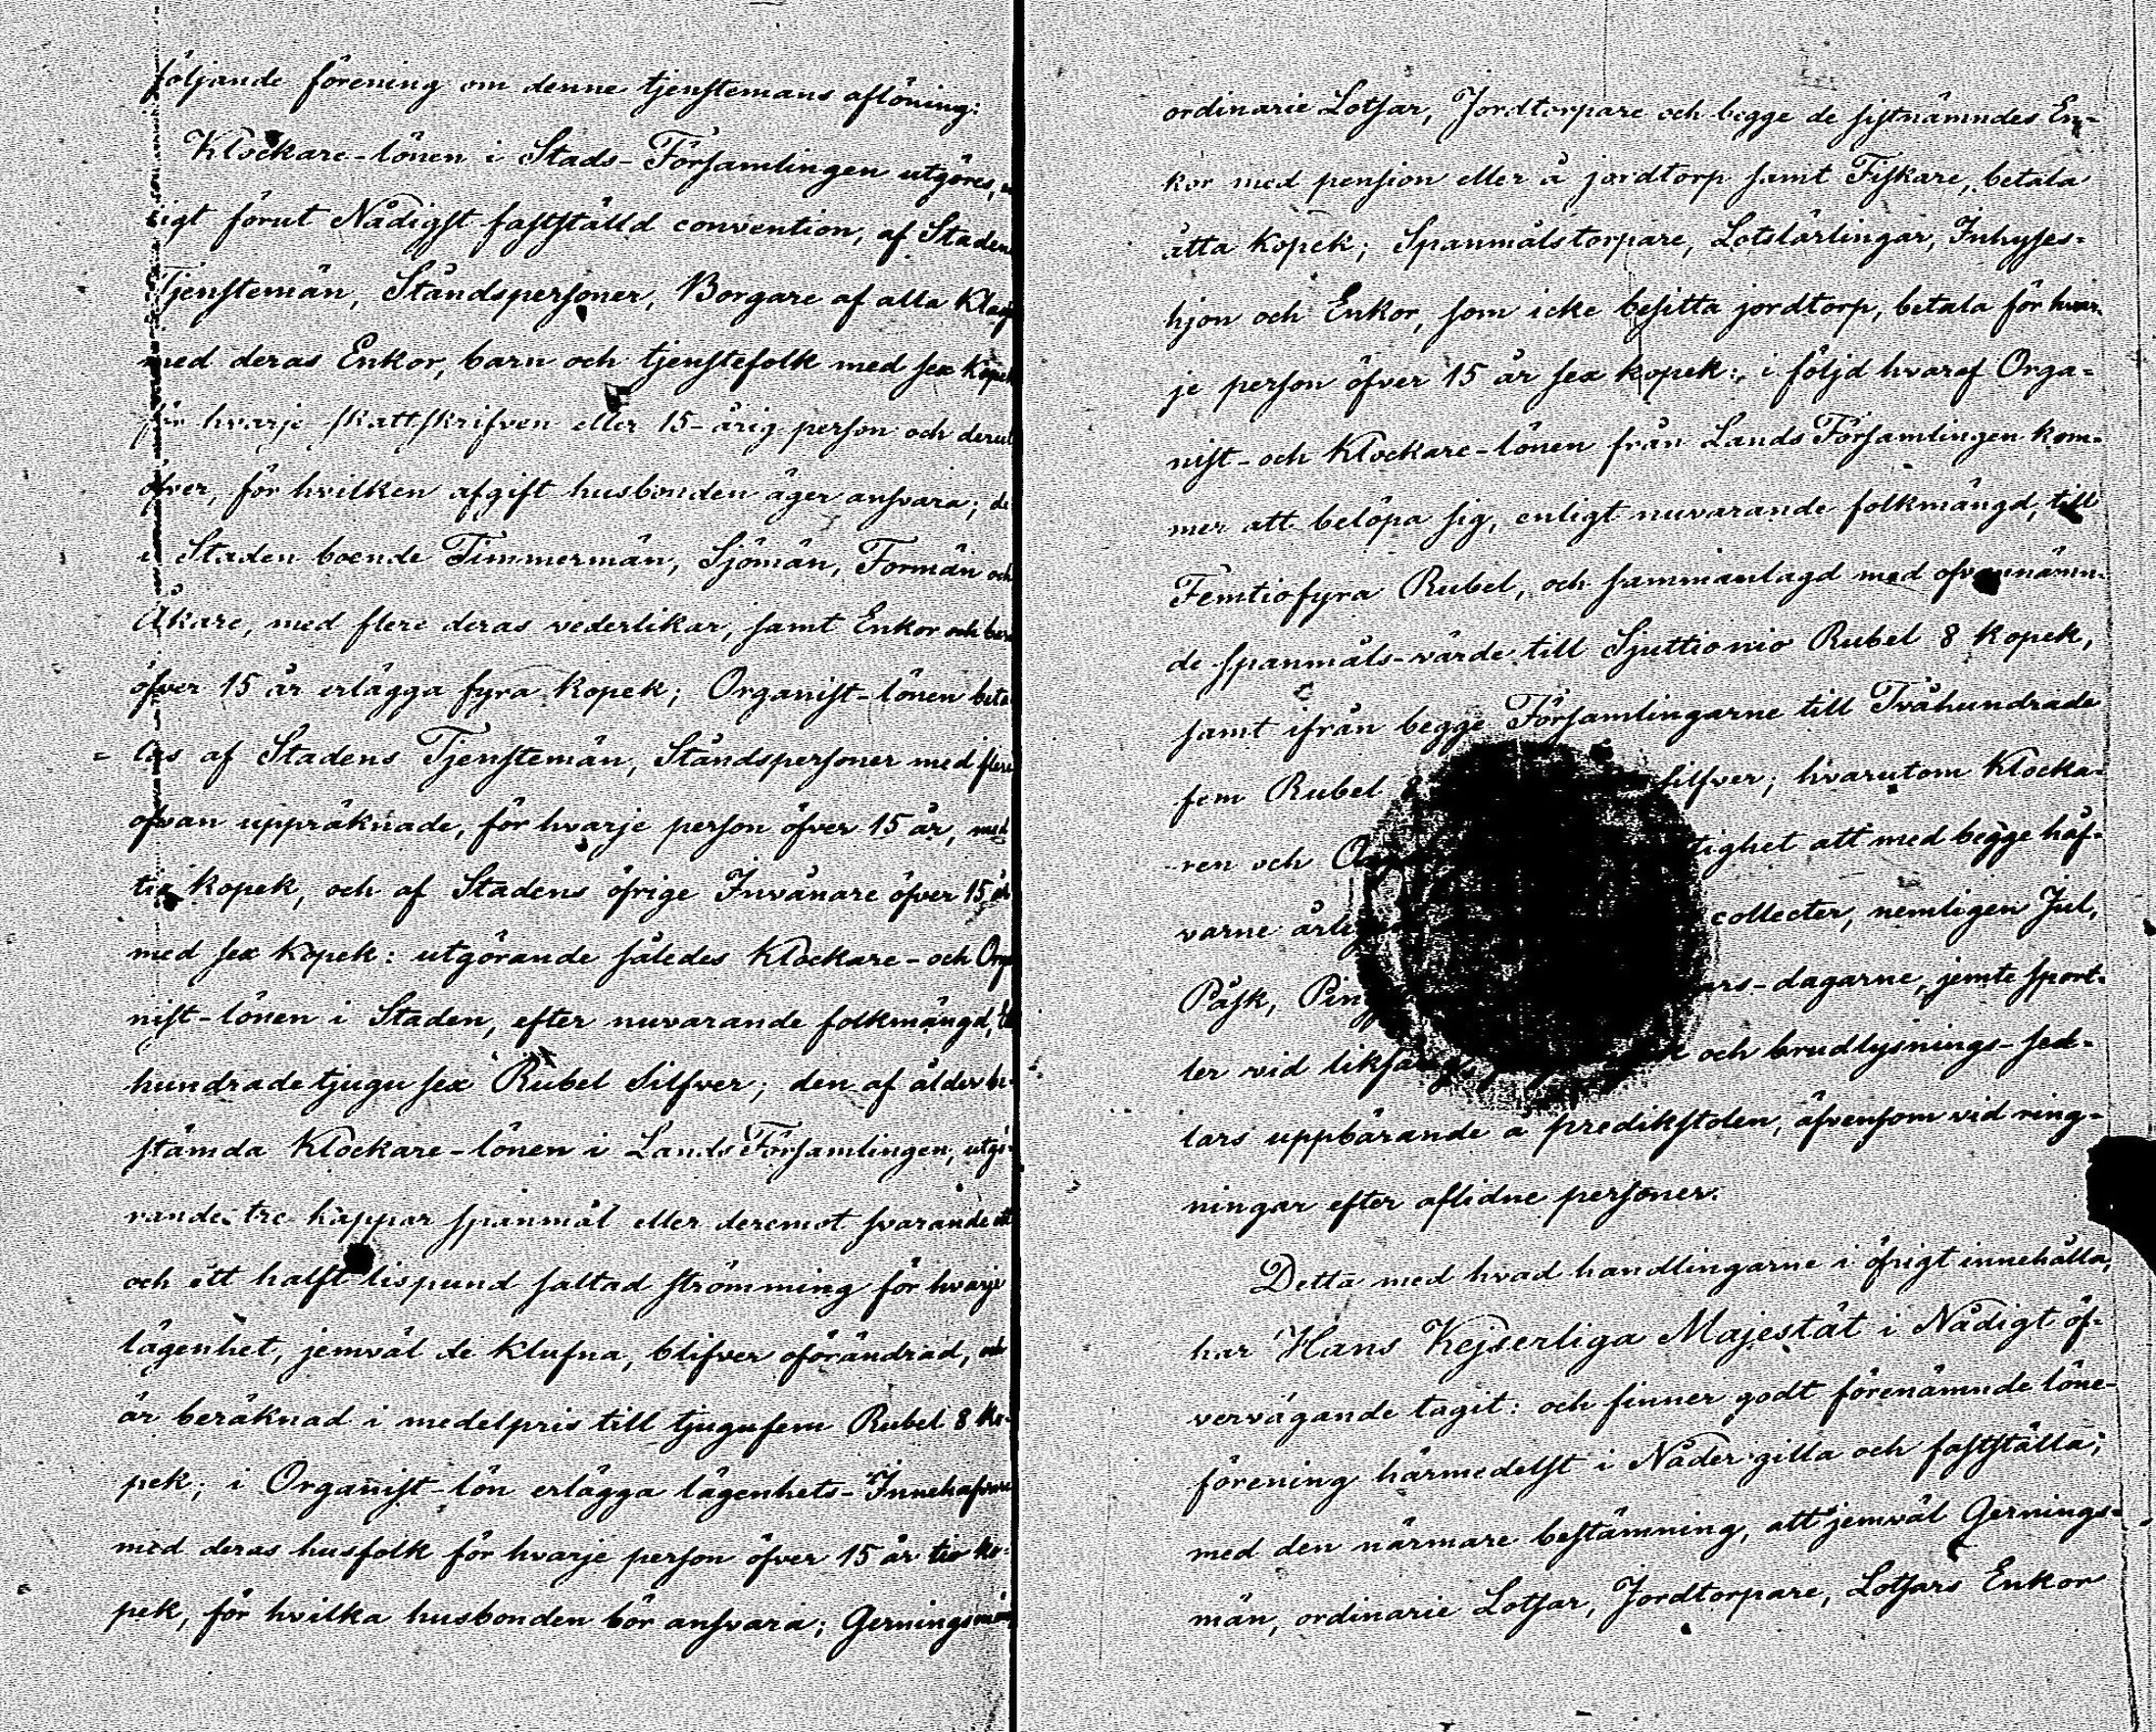 följande förening om denne tjenstemans aflöning:
Klockare-lönen i Stads-Församlingen utgöres,
ligt förut Nådigst fastställd convention, af Stadens
Tjenstemän, Ståndspersoner, Borgare af alla
med deras Enkor, barn och tjenstefolk med sex kopek
för hvarje skattskrifven eller 15-årig person och derut
öfver, för hvilken afgift husbonden äger ansvara; de
i Staden boende Timmermän, Sjömän, Formän och
Åkare, med flere deras vederlikar, samt Enkor och barn
öfver 15 år erlägga fyra kopek; Organist-lönen beta
las af Stadens Tjenstemän, Ståndspersoner med flere
ofvan uppräknade, för hvarje person öfver 15 år, med
tio kopek, och af Stadens öfrige Invånare öfver 15 år
med sex kopek: utgörande således Klockare- och Orga
nist-lönen i Staden, efter nuvarande folkmängd,
hundradetjugu sex Rubel Silfver; den af ålder be-
stämda Klockare-lönen i Lands Församlingen, utgö-
rande tre kappar spanmål eller deremot svarande
och ett halft lispund saltad strömming för hvarje
lägenhet, jemväl de klufna, blifver oförändrad, och
är beräknad i medelpris till tjugufem Rubel 8 ko-
pek; i Organist-lön erlägga lägenhets-Innehafvare
med deras husfolk för hvarje person öfver 15 år tio ko-
pek, för hvilka husbonden bör ansvara; Gerningsmän,
ordinarie Lotsar, Jordtorpare och begge de sistnämndes En-
kor med pension eller å jordtorp samt Fiskare, betala
åtta kopek; Spanmålstorpare, Lotslärlingar, Inhyses-
hjon och Enkor, som icke besitta jordtorp, betala för hvar-
je person öfver 15 år sex kopek: i följd hvaraf Orga-
nist- och Klockare-lönen från Lands Församlingen kom-
mer att belöpa sig, enligt nuvarande folkmängd, till
Femtiofyra Rubel, och sammanlagd med ofvannämn-
de spanmåls-värde till Sjuttionio Rubel 8 kopek,
samt ifrån begge Församlingarne till Tvåhundrade
fem Rubel Silfver; hvarutom Klocka-
ren och tighet att med begge håf-
varne collecter, nemligen Jul,
Påsk, -dagarne, jemte sport-
ler vid och brudlysnings-sed-
lars uppbärande å predikstolen, äfvensom vid ring-
ningar efter aflidne personer.
Detta med hvad handlingarne i öfrigt innehålla,
har Hans Kejserliga Majestät i Nådigt öf-
vervägande tagit: och finner godt förenämnde löne-
förening härmedelst i Nåder gilla och fastställa;
med den närmare bestämning, att jemväl Gernings-
män, ordinarie Lotsar, Jordtorpare, Lotsars Enkor